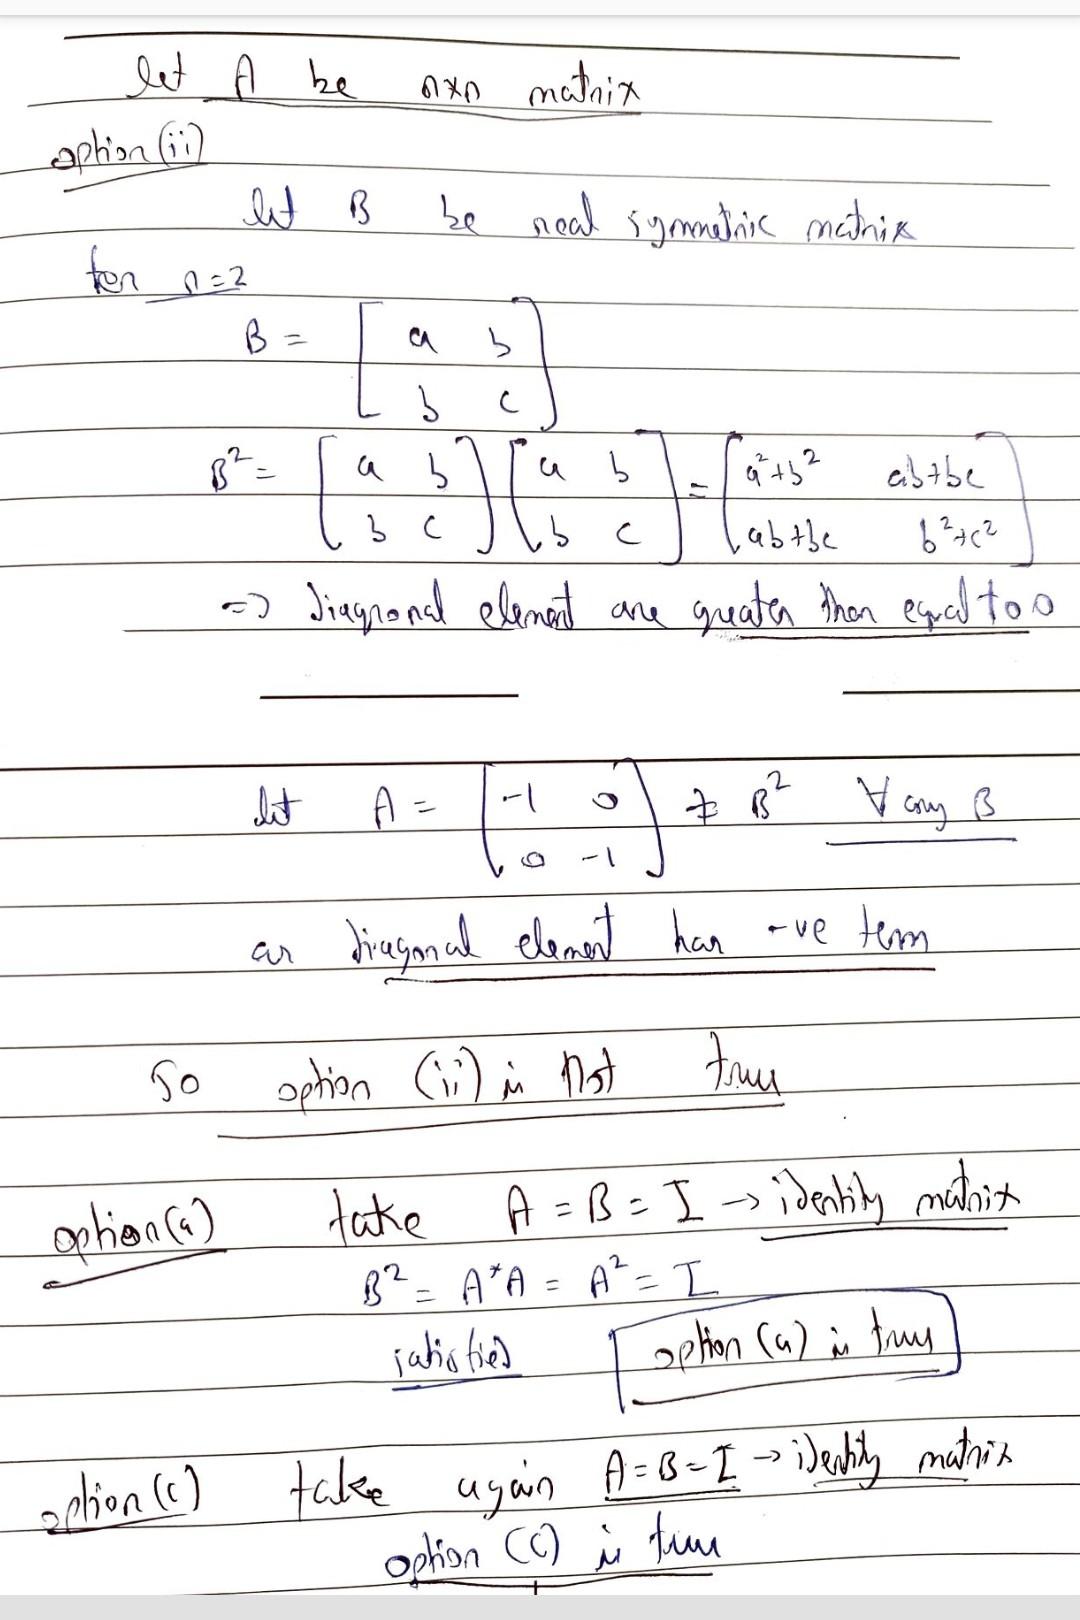 let A be nxn matrix
option (ii)
let B be real symmetric matrix
for n=2
B = [a b
b c]
B² = [a b [a b = [a²+b² ab+bc
b c] b c] ab+bc b²+c²]
=> diagnonal element are greater then equal to 0
let A = [-1 0 ≠ B² ∀ any B
0 -1]
as diagonal element has -ve term
So option (ii) is not true
option (a) take A = B = I → identity matrix
B² = A*A = A² = I
satisfied option (a) is true
option (c) take again A = B = I → identity matrix
option (C) is true